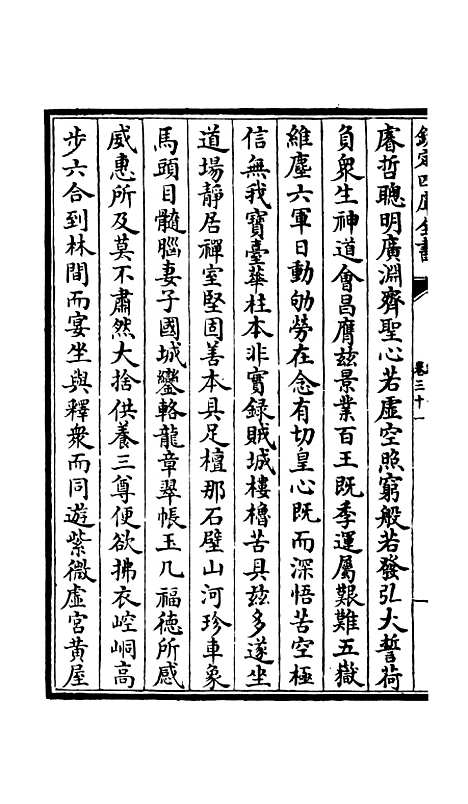 欽定四庫全書
卷三十一
睿哲聰明廣淵齊聖心若虛空照窮般若發弘大誓荷
負衆生神道會昌膺兹景業百王既季運屬艱難五嶽
維塵六軍日動劬勞在念有切皇心既而深悟苦空極
信無我寶臺華柱本非實録賊城樓櫓苦具兹多遂坐
道場靜居禪室堅固善本具足檀那石壁山河珍車象
馬頭目髓腦妻子國城鑾輅龍章翠帳玉几福德所感
威惠所及莫不肅然大捨供養三尊便欲拂衣崆峒高
步六合到林間而宴坐與釋衆而同遊紫微虛宮黄屋